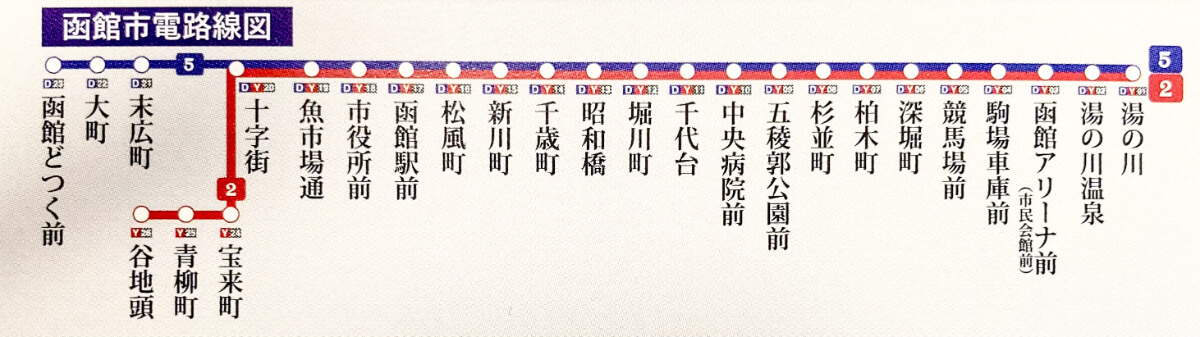 函館市電路線図
5
5
2
2
D23
D22
D21
函館どつく前
大町
末広町
十字街
魚市場通
市役所前
函館駅前
松風町
新川町
千歳町
昭和橋
堀川町
千代台
中央病院前
五稜郭公園前
杉並町
柏木町
深堀町
競馬場前
駒場車庫前
函館アリーナ前
(市民会館前)
湯の川温泉
湯の川
谷地頭
青柳町
宝来町